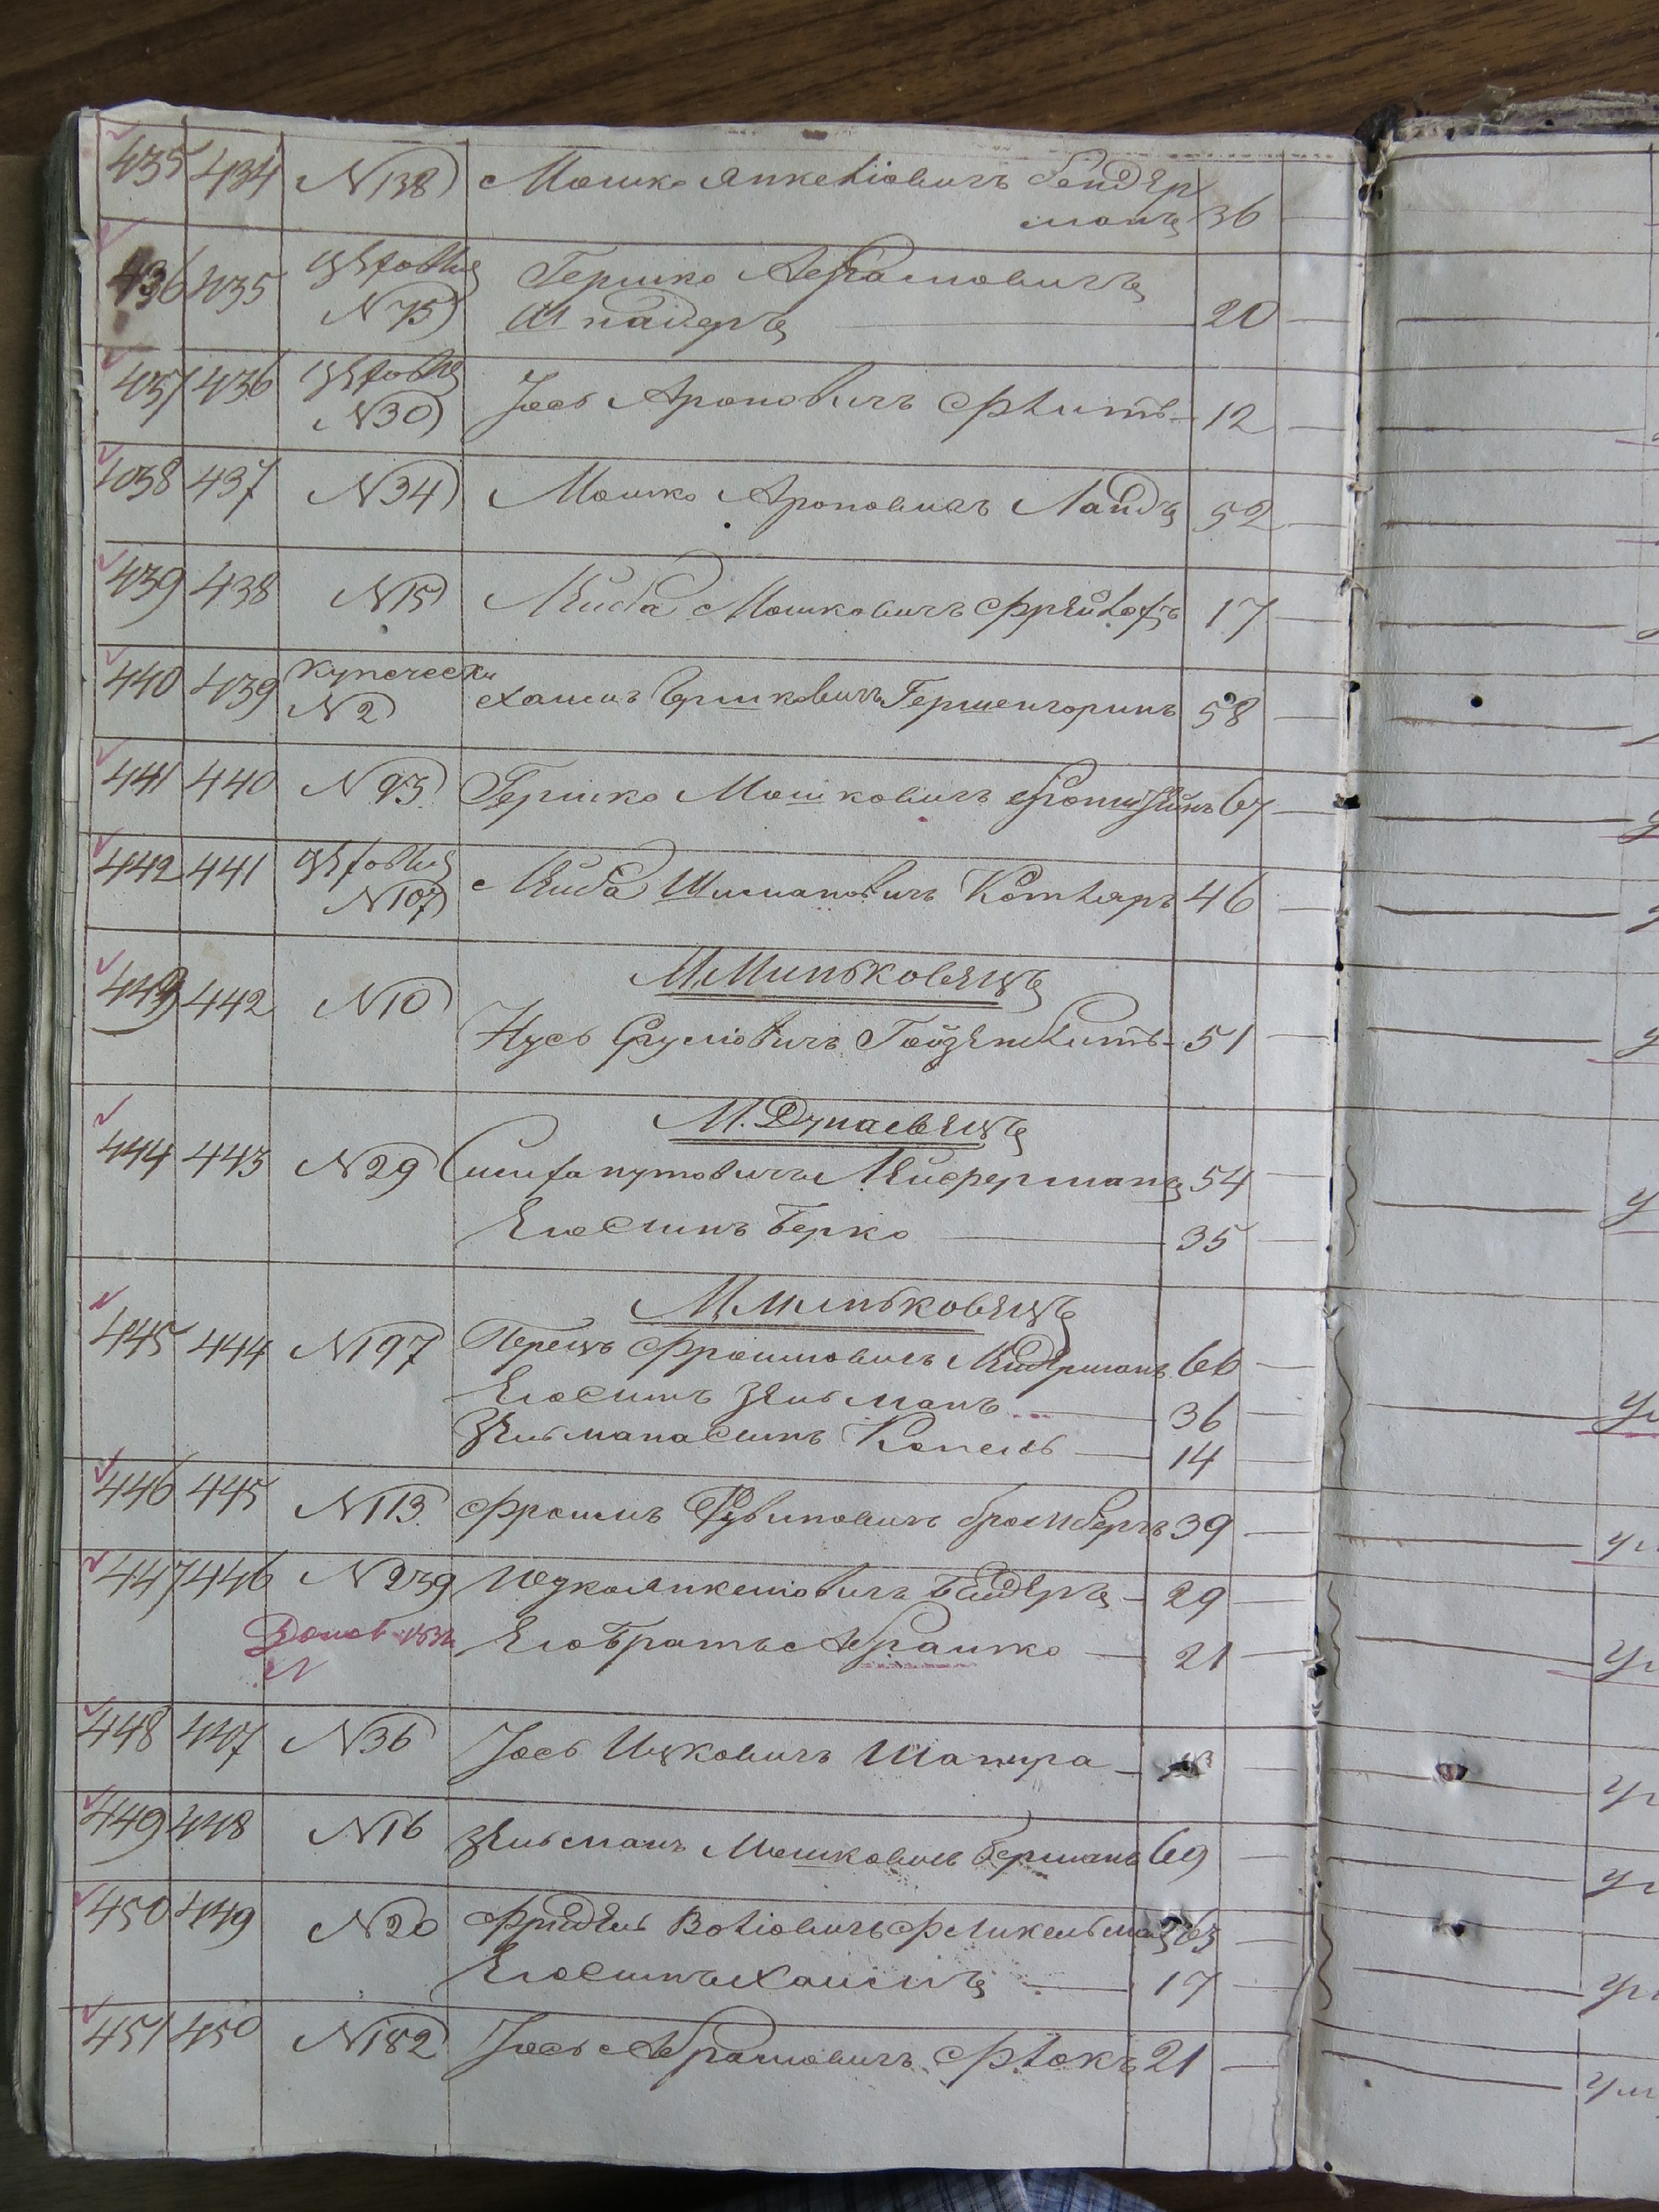 435 434 N138 Мошко Янкелiовичъ Бендер
манъ 36
436 435 Цеховые Гершко Абрамовичъ
N75 Шнайдеръ 20
437 436 Цеховые
N30 Iось Ароновичъ Флитъ 12
1038 437 N34 Мошко Ароновичъ Ландъ 52
439 438 N15 Лейба Мошковичъ Фрейлехъ 17
440 439 Купечески
N2 Хаимъ Ершковичъ Гершенгоринъ 58
441 440 N93 Гершко Мошковичъ 67
442 441 Цеховые
N107 Лейба Шимановичъ Котляръ 46
М. Миньковецъ
443 442 N10 Нусь Срулiовичъ 51
М. Дунаевецъ
444 443 N29 Симха Нутовичъ Лейферманъ 54
Его Сынъ Берко 35
М. Миньковецъ
445 444 N197 Перецъ Фроимовичъ Лейдерманъ 66
Его Сынъ Зельманъ 36
Зельмана Сынъ Копель 14
446 445 N113 Фроимъ Рувиновичъ Бромбергъ 39
447 446 N239 Юдко Янкелiовичъ Бендеръ 29
Его Братъ Абрамко 21
448 447 N36 Iось Ицковичъ Шапира
449 448 N16 Зельманъ Мошковичъ Берманъ 69
450 449 N20 Фридель Волiовичъ Финкельманъ 63
Его Сынъ Хаимъ 17
451 450 N182 Iось Абрамовичъ Флокъ 21